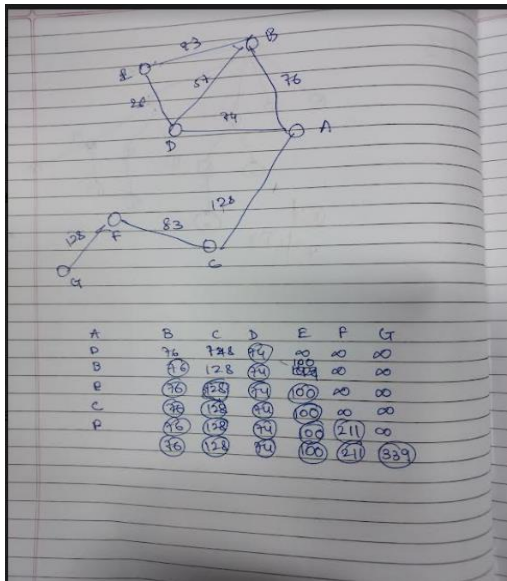 83 B
E
57 76
26
74 A
D
128
F 83
128
C
G
A B C D E F G
D 76 128 74 ∞ ∞ ∞
B 76 128 74 100 ∞ ∞
E 76 128 74 100 ∞ ∞
C 76 128 74 100 ∞ ∞
F 76 128 74 100 211 ∞
76 128 74 100 211 339